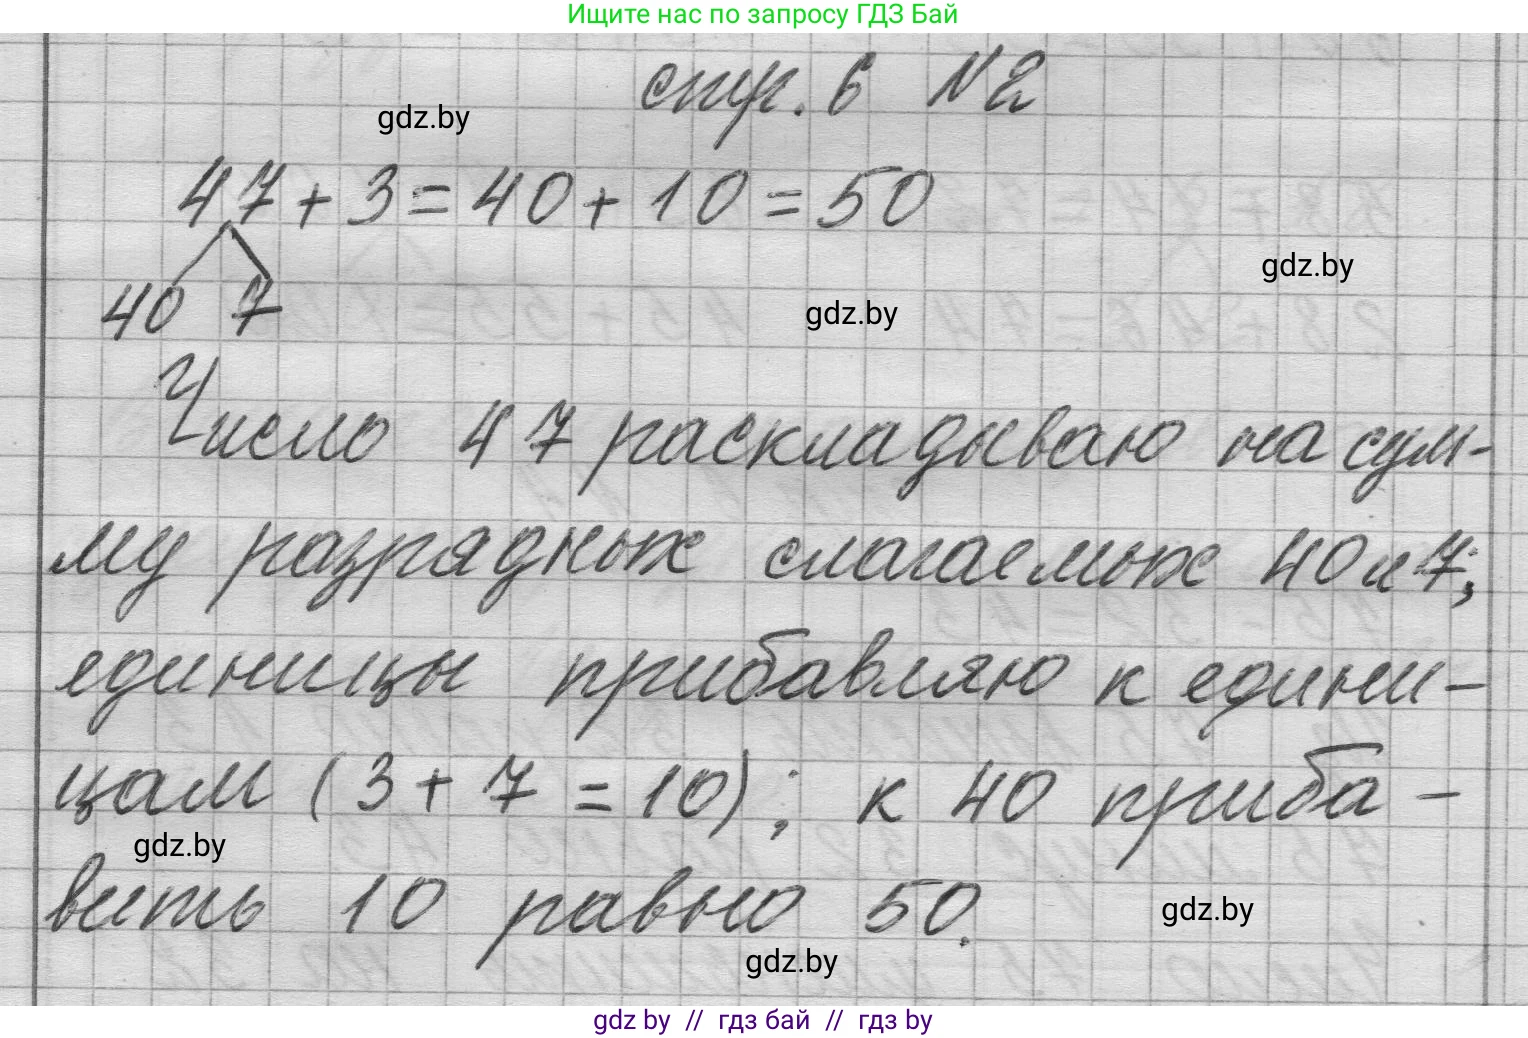 Ищите нас по запросу ГДЗ Бай
стр. 6 №2
gdz.by
47 + 3 = 40 + 10 = 50
gdz.by
40 7
gdz.by
Число 47 раскладываю на сум-
му разрядных слагаемых 40 и 7;
единицы прибавляю к едини-
цам (3 + 7 = 10); к 40 приба-
gdz.by
вить 10 равно 50.
gdz.by
gdz.by
gdz by // гдз бай // гдз by